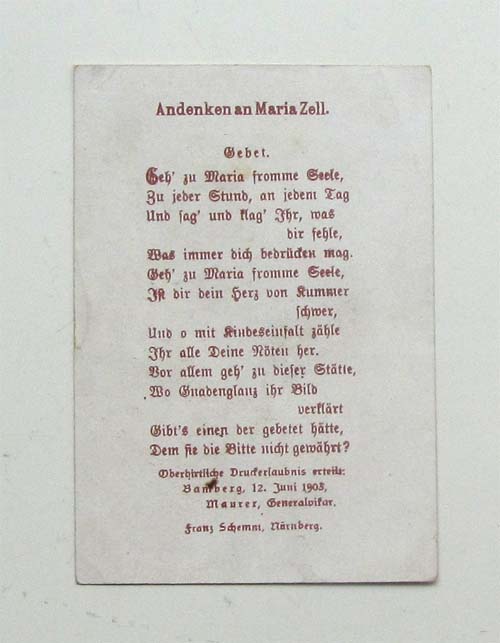 Andenken an Maria Zell.
Gebet.
Geh' zu Maria fromme Seele,
Zu jeder Stund, an jedem Tag
Und sag' und klag' Ihr, was
dir fehle,
Was immer dich bedrücken mag.
Geh' zu Maria fromme Seele,
Ist dir dein Herz von Kummer
schwer,
Und o mit Kindeseinfalt zähle
Ihr alle Deine Nöten her.
Vor allem geh' zu dieser Stätte,
Wo Gnadenglanz ihr Bild
verklärt
Gibt's einen der gebetet hätte,
Dem sie die Bitte nicht gewährt?
Oberhirtliche Druckerlaubnis erteilt:
Bamberg, 12. Juni 1903,
Maurer, Generalvikar.
Franz Schemm, Nürnberg.